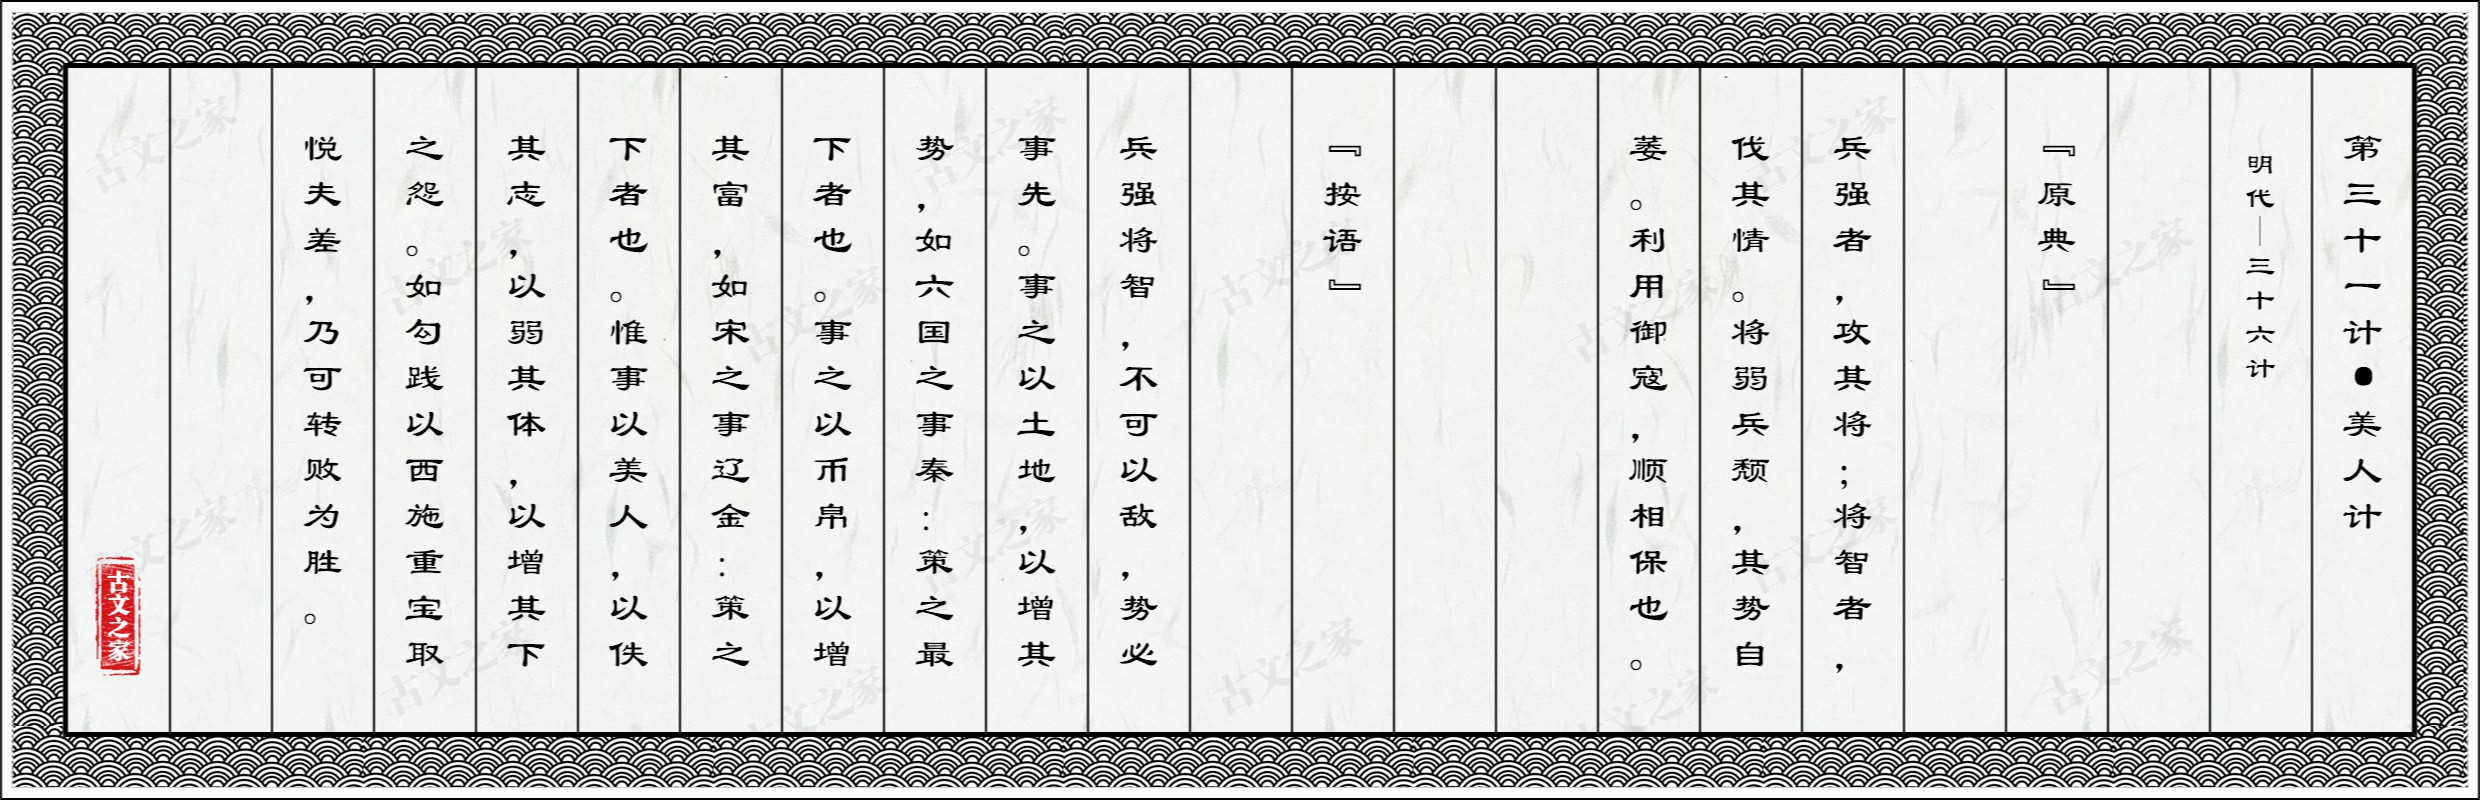 第三十一计●美人计
明代—三十六计
『原典』
兵强者，攻其将；将智者，
伐其情。将弱兵颓，其势自
萎。利用御寇，顺相保也。
『按语』
兵强将智，不可以敌，势必
事先。事之以土地，以增其
势，如六国之事秦：策之最
下者也。事之以币帛，以增
其富，如宋之事辽金：策之
下者也。惟事以美人，以佚
其志，以弱其体，以增其下
之怨。如勾践以西施重宝取
悦夫差，乃可转败为胜。
古文之家